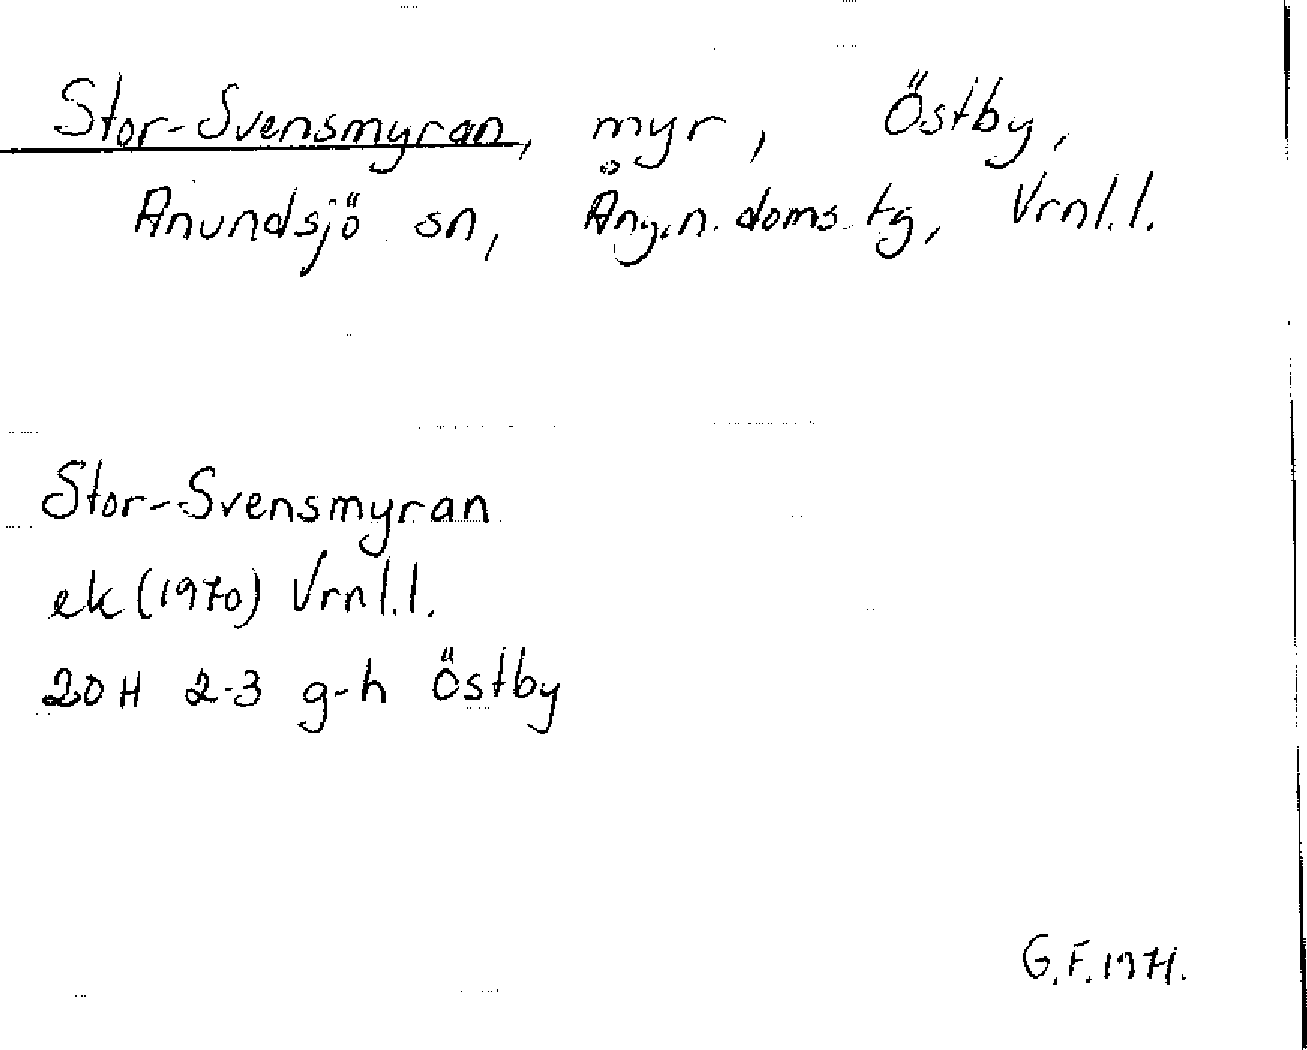 Stor-Svensmyran, myr, Östby,
Anundsjö sn, Ång.n.doms.tg, Vrnl.l.
Stor-Svensmyran
ek (1970) Vrnl.l.
20H 2-3 g-h Östby
G.F. 1971.